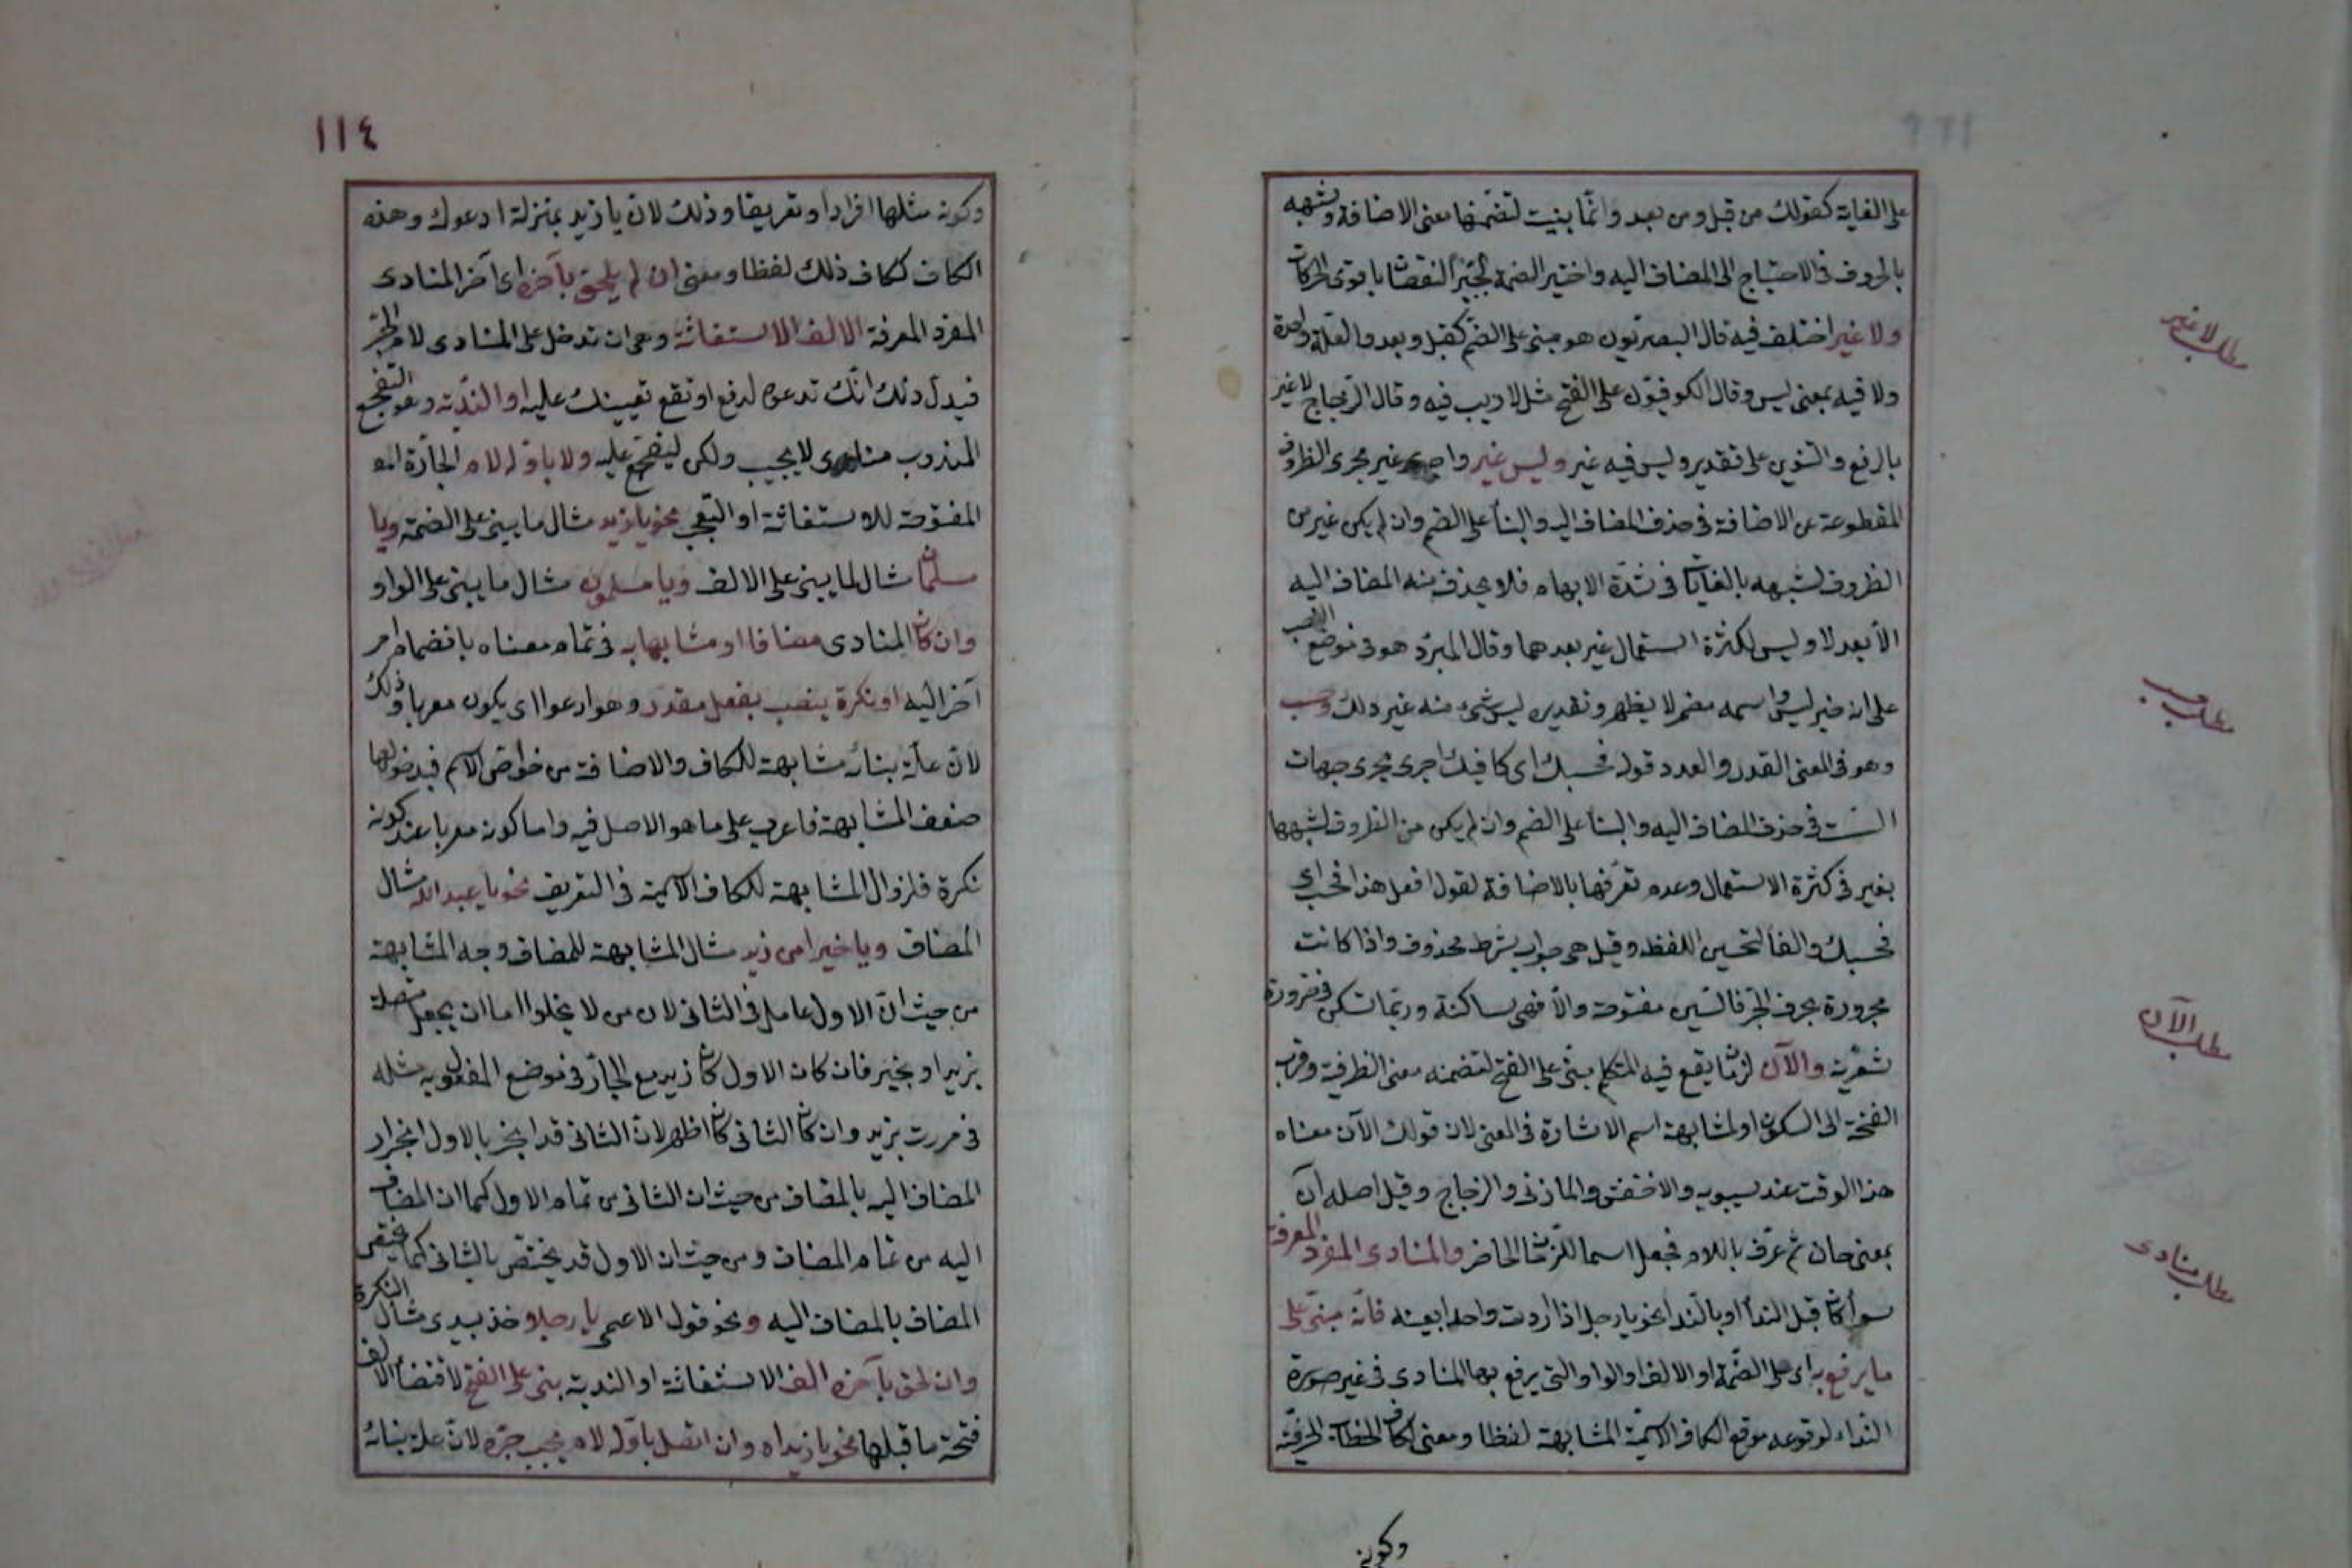 على الغاية كقولك من قبل ومن بعد وانّما بنيت لتضمنها معنى الاضافة وشبهه
بالحروف فى الاحتياج الى المضاف اليه واختير الضمة لجبر النقصان باقوى الحركات
ولا غير اختلف فيه قال البصريون هو مبنى على الضم كقبل وبعد والعلة واحدة
ولا فيه بمعنى ليس وقال الكوفيون على الفتح مثل لا ريب فيه وقال الزجاج لا غير
بالرفع والتنوين على تقدير وليس فيه غير وليس غير واجرى غير مجرى الظروف
المقطوعة عن الاضافة فى حذف المضاف اليه والبنأ على الضم وان لم يكن غير من
الظروف لشبهه بالغايات فى شدّة الابهام فلا يحذف منه المضاف اليه
الّا بعد لا وليس لكثرة استعمال غير بعدهما وقال المبرّد هو فى موضع النصب
على انه خبر ليس واسمه مضمر لا يظهر وتقديره ليس شئ منه غير ذلك وحسب
وهو فى المعنى القدر والعدد قوله فحسبك اى كافيك اجرى مجرى جهات
الست فى حذف المضاف اليه والبنأ على الضم وان لم يكن من الظروف لشبهها
بغير فى كثرة الاستعمال وعدم تعرّفها بالاضافة لقول افعل هذا فحسب اى
فحسبك والفأ لتحسين اللفظ وقيل هى جواب شرط محذوف واذا كانت
مجرورة بحرف الجرّ فالسين مفتوحة والّا فهى ساكنة وربّما تسكن فى ضرورة
شعرية والآن لزمان يقع فيه المتكلم بنى على الفتح لتضمنه معنى الظرفية وقرب
الفتحة الى السكون او لمشابهة اسم الاشارة فى المعنى لان قولك الآن معناه
هذا الوقت عند سيبويه والاخفش والمازنى والزجاج وقيل اصله آن
بمعنى حان ثم عرّف باللام فجعل اسما للزمان الحاضر والمنادى المفرد المعرفة
سوأ كان قبل الندأ او بالندا نحو يا رجل اذا اردت واحدا بعينه فانّه مبنىّ على
ما يرفع به اى على الضمّة او الالف او الواو التى يرفع بها المنادى فى غير صورة
النّداء لوقوعه موقع الكاف الاسميّة المشابهة لفظا ومعنى لكاف الخطاب الحرفيّة
وكونه
مطلب لا غير
مطلب حسب
مطلب الآن
مطلب منادى
١١٤
وكونه مثلها افرادا وتعريفا وذلك لانّ يا زيد بمنزلة ادعوك وهذه
الكاف ككاف ذلك لفظا ومعنى ان لم يلحق بآخره اى آخر المنادى
المفرد المعرفة الالف الاستغاثة وهى ان تدخل على المنادى لام الجرّ
فيدلّ ذلك انّك تدعوه لدفع او تقع تعيينك عليه او النّدبة وهو التفجع
المندوب منادى لا يجيب ولكن ليفجع عليه ولا باوّله لام الجارّة
المفتوحة للاستغاثة او التعجب نحو يا زيد مثال ما يبنى على الضمّة ويا
مسلمان مثال لما يبنى على الالف ويا مسلمون مثال ما يبنى على الواو
وان كان المنادى مضافا او مشابها به فى تمام معناه بانضمام امر
آخر اليه او نكرة ينصب بفعل مقدر وهو ادعوا اى يكون معربا وذلك
لانّ علّة بنائه مشابهة للكاف والاضافة من خواص الاسم فبدخولها
ضعف المشابهة فاعرب على ما هو الاصل فيه واما كونه معربا عند كونه
نكرة فلزوال المشابهة للكاف الاسمية فى التعريف نحو يا عبد الله مثال
المضاف ويا خيرا من زيد مثال المشابهة للمضاف وجه المشابهة
من حيث انّ الاول عامل فى الثانى لان من لا يخلوا اما ان يجعل متصلة
بزيد او بخير فان كان الاول كان زيد مع الجارّ فى موضع المفعول به مثله
فى مررت بزيد وان كان الثانى كان اظهر لانّ الثانى قد انجرّ بالاول انجرار
المضاف اليه بالمضاف من حيث ان الثانى من تمام الاول كما ان المضاف
اليه من تمام المضاف ومن حيث ان الاول قد يختصّ بالثانى كما يختص
المضاف بالمضاف اليه ونحو قول الاعمى يا رجلا خذ بيدى مثال النكرة
وان لحق بآخره الف الاستغاثة او الندبة بنى على الفتح لاقتضأ الالف
فتحة ما قبلها نحو يا زيداه وان اتصل باوّله لام يجب جرّه لانّ علة بنائه